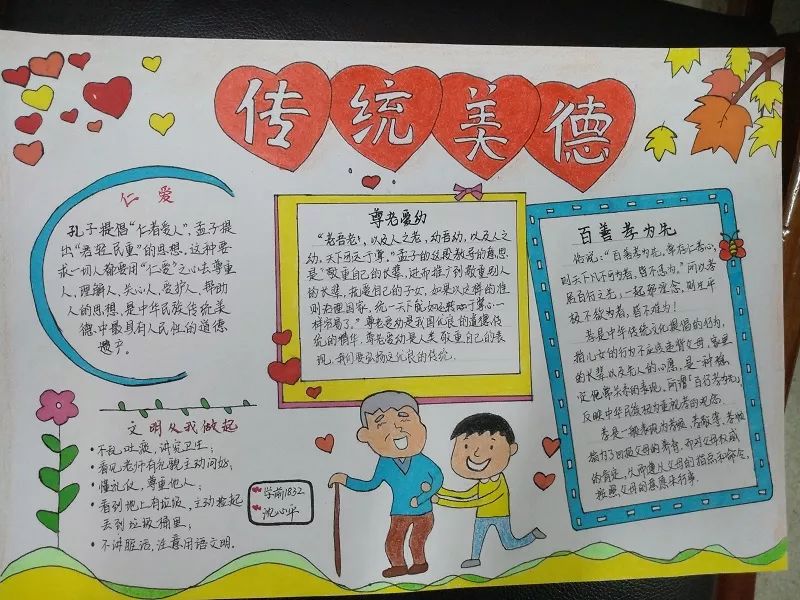 传统美德
仁爱
孔子提倡“仁者爱人”,孟子提
出“君轻民重”的思想,这种要
求一切人都要用“仁爱”之心去尊重
人,理解人,关心人,爱护人,帮助
人的思想,是中华民族传统美
德中最具有人民性的道德
遗产。
文明从我做起
·不乱吐痰,讲究卫生;
·看见老师有礼貌主动问好;
·懂礼仪,尊重他人;
·看到地上有垃圾,主动捡起
丢到垃圾桶里;
·不讲脏话,注意用语文明.
尊老爱幼
“老吾老,以及人之老,幼吾幼,以及人之
幼,天下可运于掌。”孟子的这段教导的意思
是“敬重自己的长辈,进而推广到敬重别人
的长辈,抚爱自己的子女,如果以这样的准
则治理国家,统一天下就如运转于掌心一
样容易了。”尊老爱幼是我国优良的道德传
统的精华,尊老爱幼是人类敬重自己的表
现,我们要弘扬这优良的传统.
学前1832
沈心
百善孝为先
俗说:“百善孝为先,常存仁孝心,
则天下凡不可为者,皆不忍为。”所以孝
居百行之先,一起邪淫念,则生平
极不欲为者,皆不难为!
孝是中华传统文化提倡的行为,
指儿女的行为不应该违背父母、家里
的长辈以及先人的心愿,是一种稳
定伦常关系的表现,所谓“百行孝为先”,
反映中华民族极为重视孝的观念.
孝是一般表现为孝顺、孝敬等,孝顺
指为了回报父母的养育,而对父母权威
的肯定,从而遵从父母的指点和命令,
按照父母的意愿来行事.